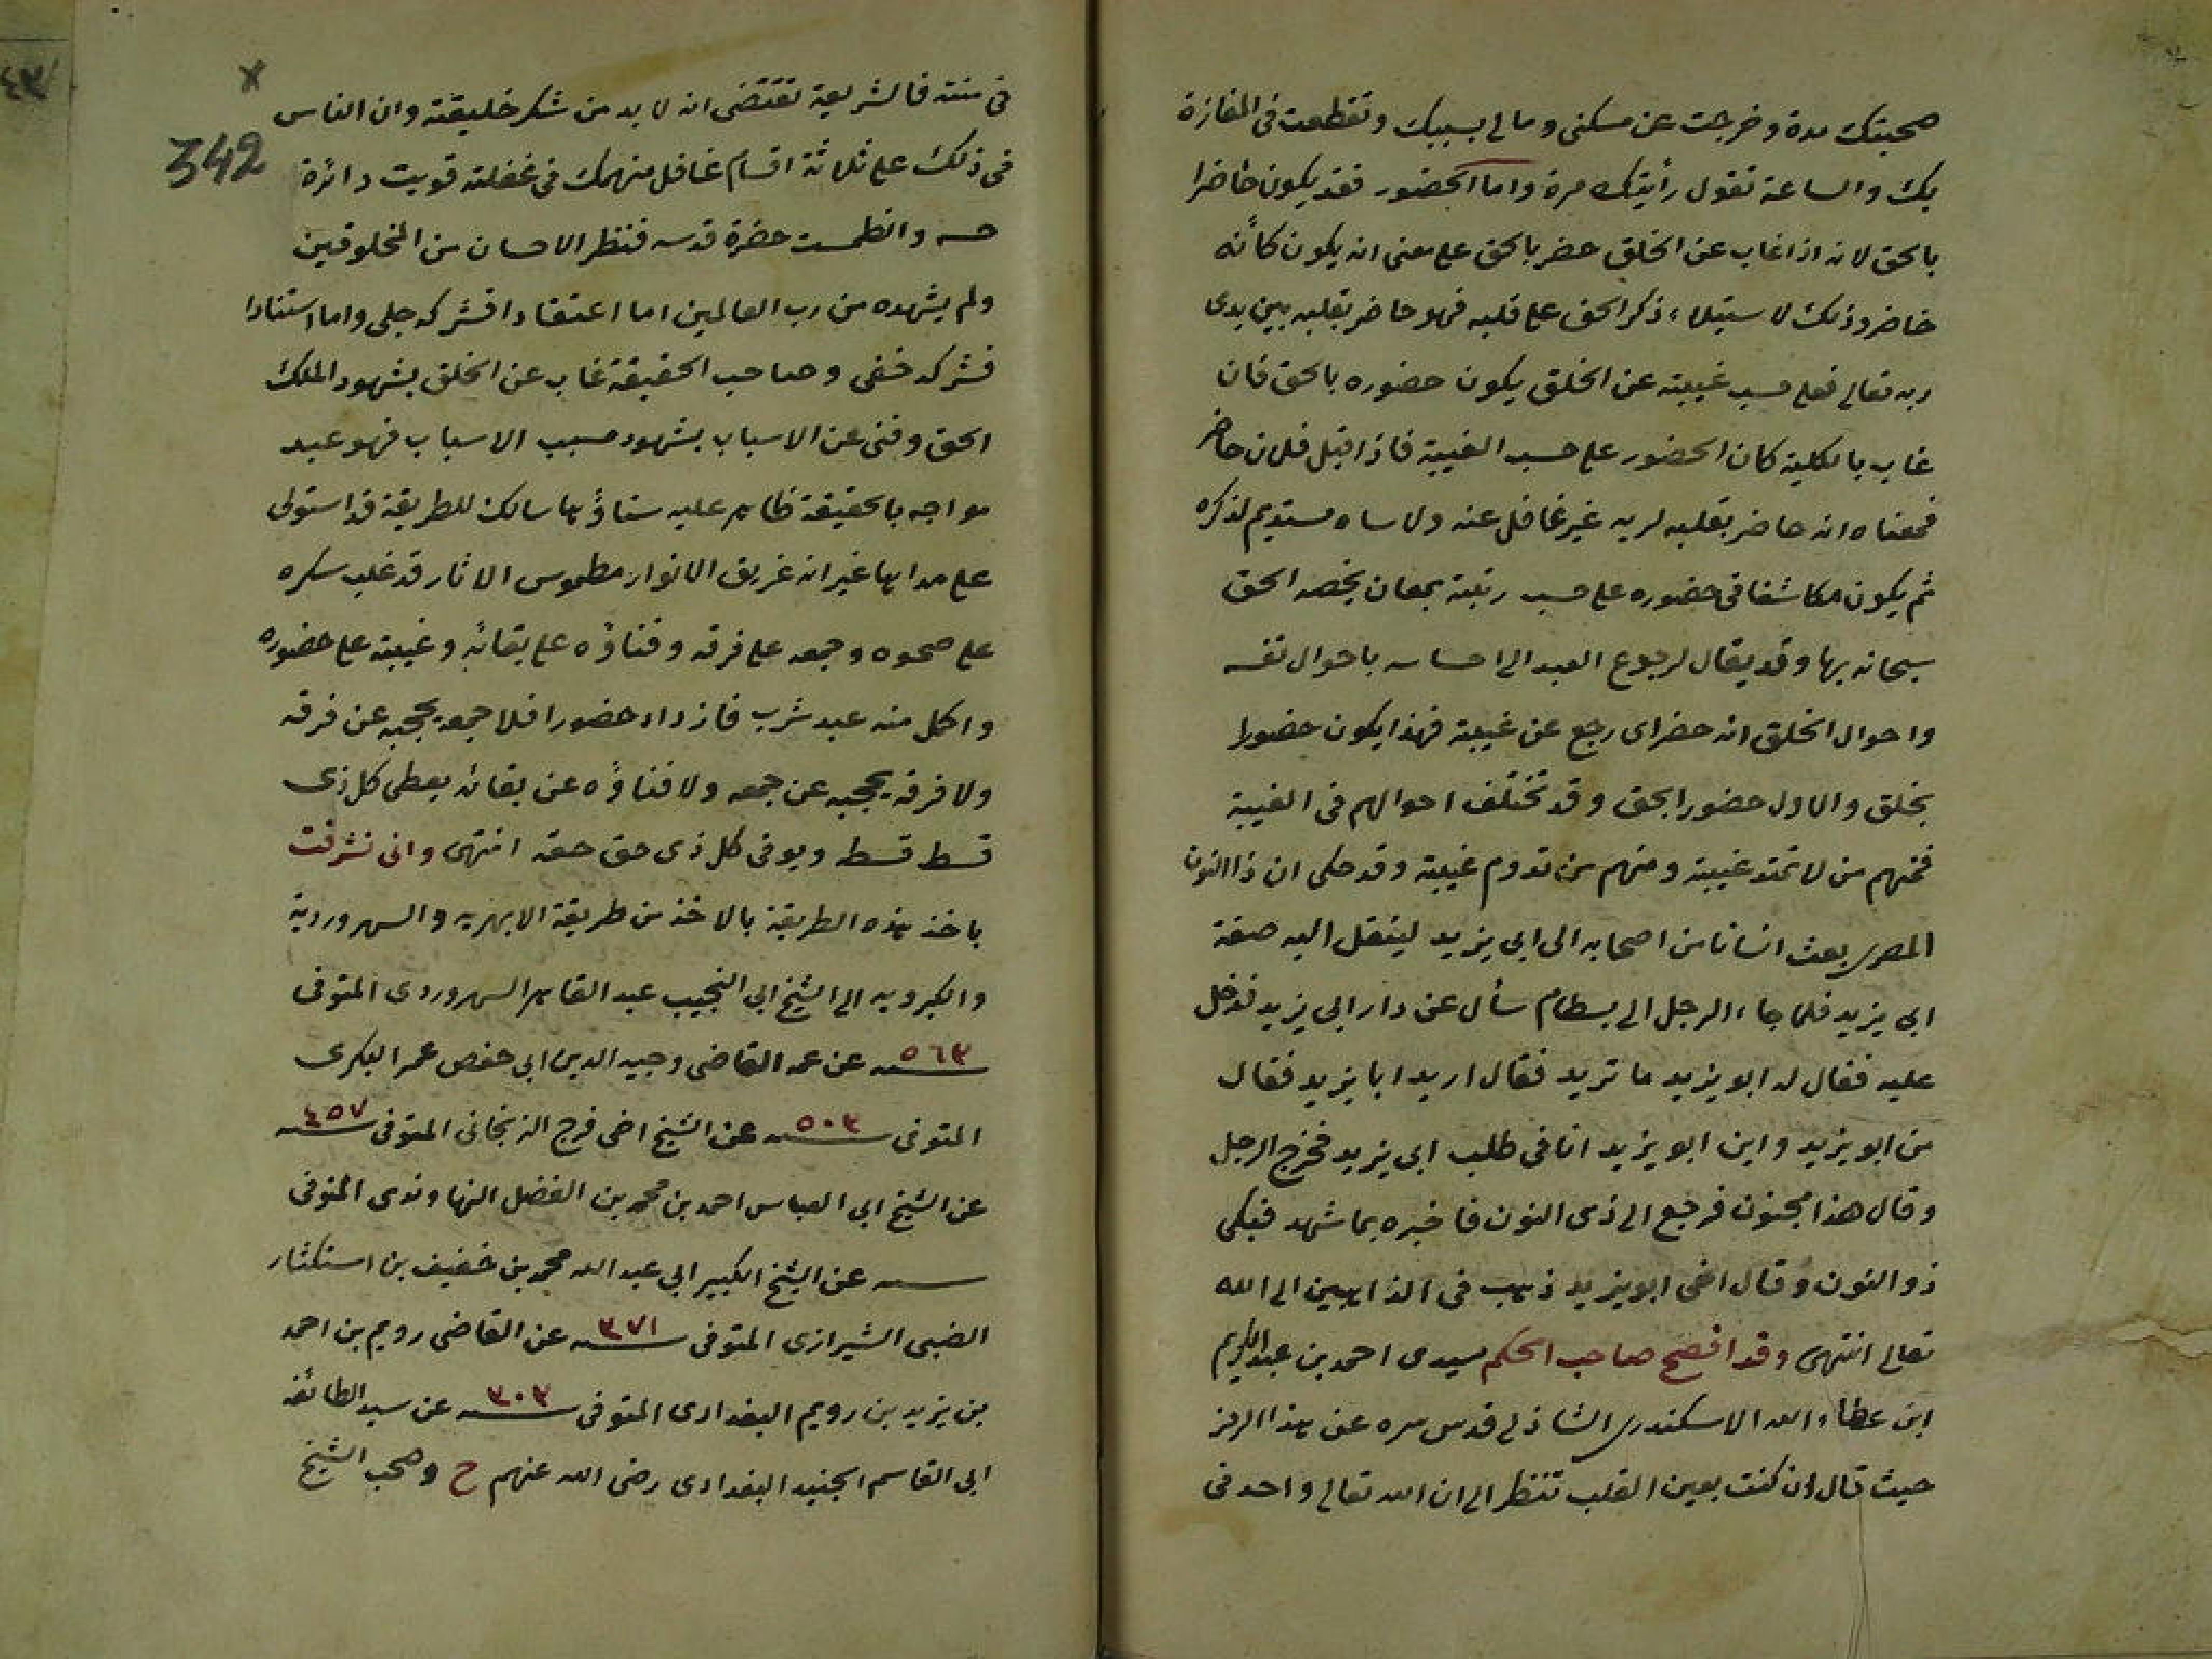 صحبتك مدة وخرجت عن مسكنى ومالى بسببك وتقطعت فى المفازة
بك والساعة تقول رأيتك مرة واما الحضور فقد يكون حاضرا
بالحق لانه اذا غاب عن الخلق حضر بالحق على معنى انه يكون كأنه
حاضر وذلك لاستيلاء ذكر الحق على قلبه فهو حاضر بقلبه بين يدى
ربه تعالى فعلى حسب غيبته عن الخلق يكون حضوره بالحق فان
غاب بالكلية كان الحضور على حسب الغيبة فاذا قيل فلان حاضر
فمعناه انه حاضر بقلبه لربه غير غافل عنه ولا ساه مستديم لذكره
ثم يكون مكاشفا فى حضوره على حسب رتبته بمعان يخصه الحق
سبحانه بها وقد يقال لرجوع العبد الى احساسه باحوال نفسه
واحوال الخلق انه حضر اى رجع عن غيبته فهذا يكون حضورا
بخلق والاول حضورا بحق وقد تختلف احوالهم فى الغيبة
فمنهم من لا تمتد غيبته ومنهم من تدوم غيبته وقد حكى ان ذا النون
المصرى بعث انسانا من اصحابه الى ابى يزيد لينقل اليه صفة
ابى يزيد فلما جاء الرجل الى بسطام سأل عن دار ابى يزيد فدخل
عليه فقال له ابو يزيد ما تريد فقال اريد ابا يزيد فقال
من ابو يزيد واين ابو يزيد انا فى طلب ابى يزيد فخرج الرجل
وقال هذا مجنون فرجع الى ذى النون فاخبره بما شهد فبكى
ذو النون وقال اخى ابو يزيد ذهب فى الذاهبين الى الله
تعالى انتهى وقد افصح صاحب الحكم سيدى احمد بن عبد الكريم
ابن عطاء الله الاسكندرى الشاذلى قدس سره عن هذا الرمز
حيث قال ان كنت بعين القلب تنظر الى ان الله تعالى واحد فى
فى منته فالشريعة تقتضى انه لا بد من شكر خليقته وان الناس
342
فى ذلك على ثلاثة اقسام غافل منهمك فى غفلته قويت دائرة
حسه وانطمست حضرة قدسه فنظر الاحسان من المخلوقين
ولم يشهده من رب العالمين اما اعتقادا فشركه جلى واما استنادا
فشركه خفى وصاحب الحقيقة غاب عن الخلق بشهود الملك
الحق وفنى عن الاسباب بشهود مسبب الاسباب فهو عبد
مواجه بالحقيقة ظاهر عليه سناؤها سالك للطريقة قد استولى
على مداها غير انه غريق الانوار مطموس الاثار قد غلب سكره
على صحوه وجمعه على فرقه وفناؤه على بقائه وغيبته على حضوره
واكمل منه عبد شرب فازداد حضورا فلا جمعه يحجبه عن فرقه
ولا فرقه يحجبه عن جمعه ولا فناؤه عن بقائه يعطى كل ذى
قسط قسطه ويوفى كل ذى حق حقه انتهى وانى تشرفت
باخذ هذه الطريقة بالاخذ من طريقة الابهرية والسهروردية
والكبروية الى الشيخ ابى النجيب عبد القاهر السهروردى المتوفى
سنه ٥٦٣ عن عمه القاضى وجيه الدين ابى حفص عمر البكرى
المتوفى سنه ٥٠٣ عن الشيخ اخى فرج الزنجانى المتوفى سنه ٤٥٧
عن الشيخ ابى العباس احمد بن محمد بن الفضل النهاوندى المتوفى
سنه عن الشيخ الكبير ابى عبد الله محمد بن خفيف بن اسكشار
الضبى الشيرازى المتوفى سنه ٣٧١ عن القاضى رويم بن احمد
بن يزيد بن رويم البغدادى المتوفى سنه ٣٠٣ عن سيد الطائفة
ابى القاسم الجنيد البغدادى رضى الله عنهم ح وصحب الشيخ